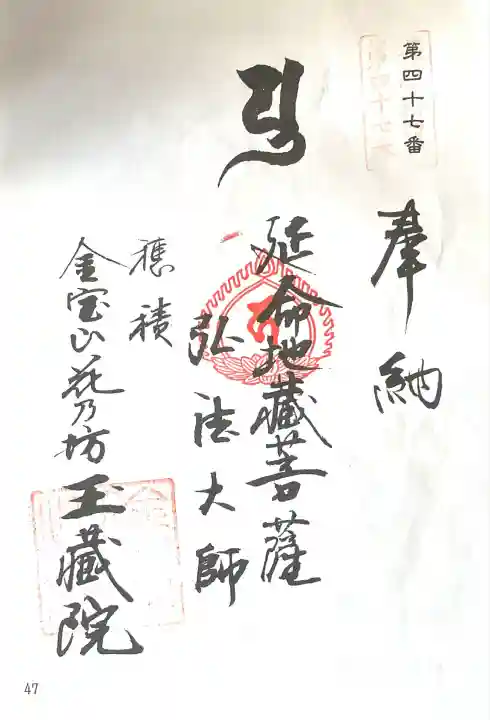 第四十七番
奉納
延命地蔵菩薩
弘法大師
穂積
金宝山花乃坊王蔵院
47